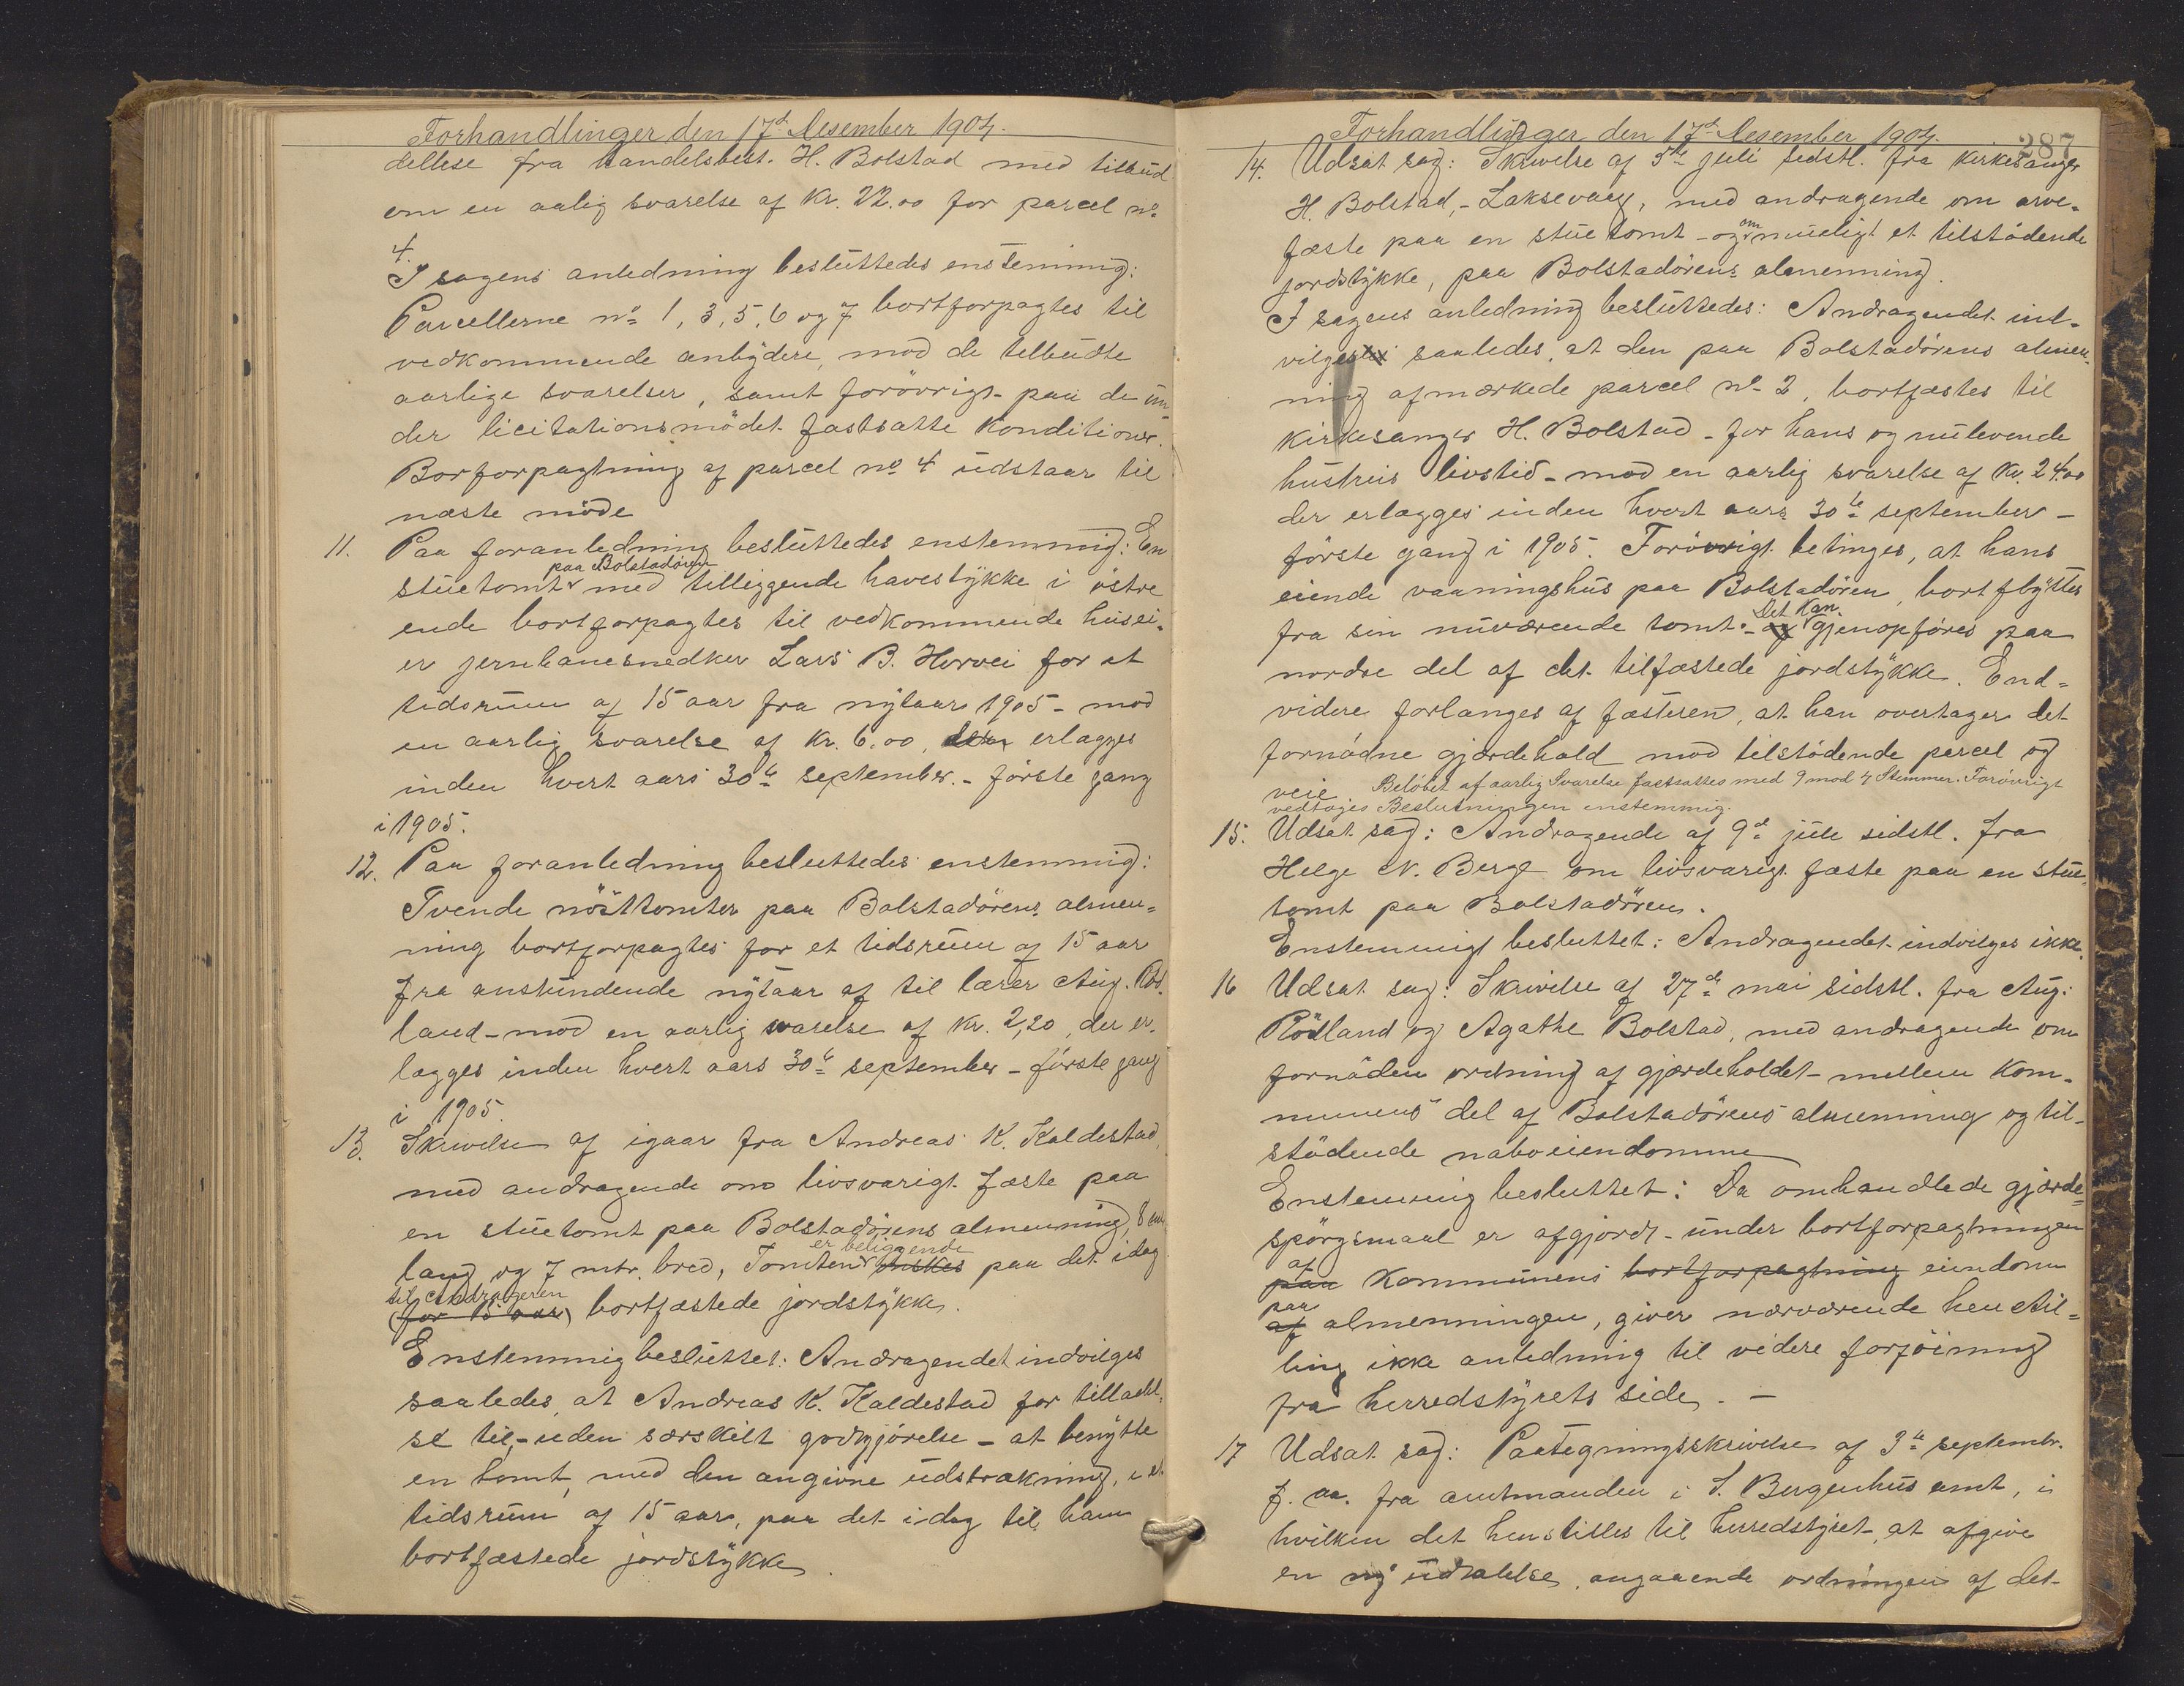 Forhandlinger den 17d Desember 1904.
dellese fra handelsbest. H. Bolstad med tilbud
om en aalig svarelse af Kr. 22.00 for parcel no
4.
I sagens anledning besluttedes enstemmig:
Parcellerne no 1, 3, 5, 6 og 7 bortforpagtes til
vedkommende anbydere, mod de tilbudte
aarlige svarelser, samt forøvrigt paa de un-
der licitationsmødet fastsatte Konditioner.
Borforpagtning af parcel no 4 udstaar til
næste møde
11. Paa foranledning besluttedes enstemmig: En
paa Bolstadøren
stuetomt med tilliggende havestykke i østre
ende bortforpagtes til vedkommende husei-
er jernbanesnedker Lars B. Horvei for et
tidsrum af 15 aar fra nytaar 1905 - mod
en aarlig svarelse af Kr. 6.00, erlægges
inden hvert aars 30te september. - første gang
i 1905.
12. Paa foranledning besluttedes enstemmig:
Tvende nøsttomter paa Bolstadørens almen-
ning bortforpagtes for et tidsrum af 15 aar
fra anstundende nytaar af til lærer Aug. Rød-
land - mod en aarlig svarelse af Kr. 2,20, der er-
lægges inden hvert aars 30te september - første gang
i 1905.
13. Skrivelse af igaar fra Andreas K. Kaldestad,
med andragende om livsvarigt fæste paa
en stuetomt paa Bolstadørens almenning, 8 mtr
lang og 7 mtr. bred, Tomten ønskes paa det idag
er beliggende
til Andrageren
(for 15 aar) bortfæstede jordstykke.
Enstemmig besluttet: Andragendet indvilges
saaledes, at Andreas K. Kaldestad før tilladel-
se til, - uden særskilt godtgjørelse - at benytte
en tomt, med den angivne udstrækning, i et
tidsrum af 15 aar, paa det idag til ham
bortfæstede jordstykke.
Forhandlinger den 17d Desember 1904.
287
14. Udsat sag: Skrivelse af 5te juli sidstl. fra Kirkesanger
H. Bolstad, - Laksevaag, med andragende om arve-
fæste paa en stuetomt - og om mueligt et tilstødende
jordstykke, paa Bolstadørens almenning.
I sagens anledning besluttedes: Andragendet ind-
vilges saaledes, at den paa Bolstadørens almen-
ning afmærkede parcel no 2, bortfæstes til
Kirkesanger H. Bolstad - for hans og nulevende
hustrus livstid - mod en aarlig svarelse af Kr. 24.00
der erlægges inden hvert aars 30te september -
første gang i 1905. Forøvrigt betinges, at hans
eiende vaaningshus paa Bolstadøren, bortflyttes
fra sin nuværende tomt. - og Det Kan gjenopføres paa
nordre del af det tilfæstede jordstykke. End-
videre forlanges af fæsteren, at han overtager det
fornødne gjærdehold mod tilstødende parcel og
veie. Beløbet af aarlig Svarelse fastsattes med 9 mod 4 Stemmer. Forøvrigt
vedtoges Beslutningen enstemmig.
15. Udsat sag: Andragende af 9d juli sidstl. fra
Helge N. Berge om livsvarigt fæste paa en stue-
tomt paa Bolstadøren.
Enstemmigt besluttet: Andragendet indvilges ikke.
16 Udsat sag: Skrivelse af 27de mai sidstl. fra Aug:
Rödland og Agathe Bolstad, med andragende om
fornøden ordning af gjærdeholdet - mellem Kom-
munens del af Bolstadørens almenning og til-
stødende naboeiendomme
Enstemmig besluttet: Da omhandlede gjærde-
spørgsmaal er afgjordt - under bortforpagtningen
paa af Kommunens bortforpagtning eiendom
af paa almenningen, giver nærværende henstil-
ling ikke anledning til videre forføining
fra herredstyrets side. -
17 Udsat sag: Paategningsskrivelse af 3de septembr.
f. aa. fra amtmanden i S. Bergenhus amt, i
hvilken det henstilles til herredstyret, at afgive
en ny udtalelse, angaaende ordningen af det